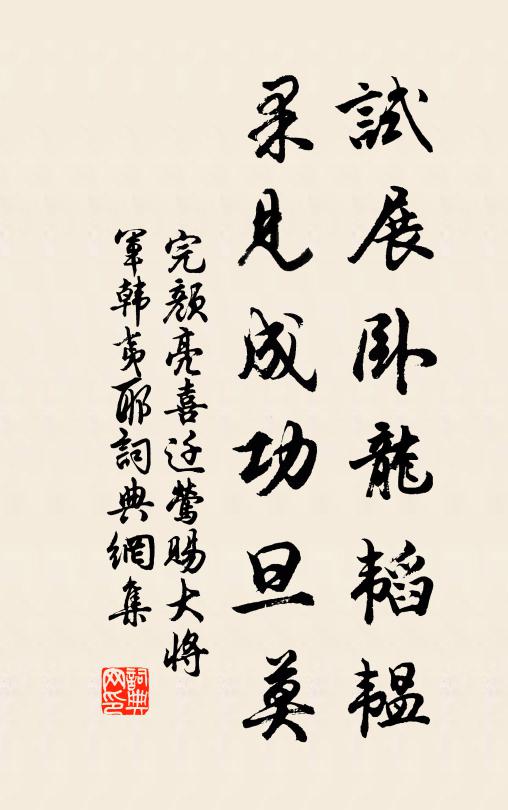 試展卧龍韜韞
果見成功旦莫
完顏亮喜迁鶯賜大將
軍韓夷耶詞典網集
詞典网印